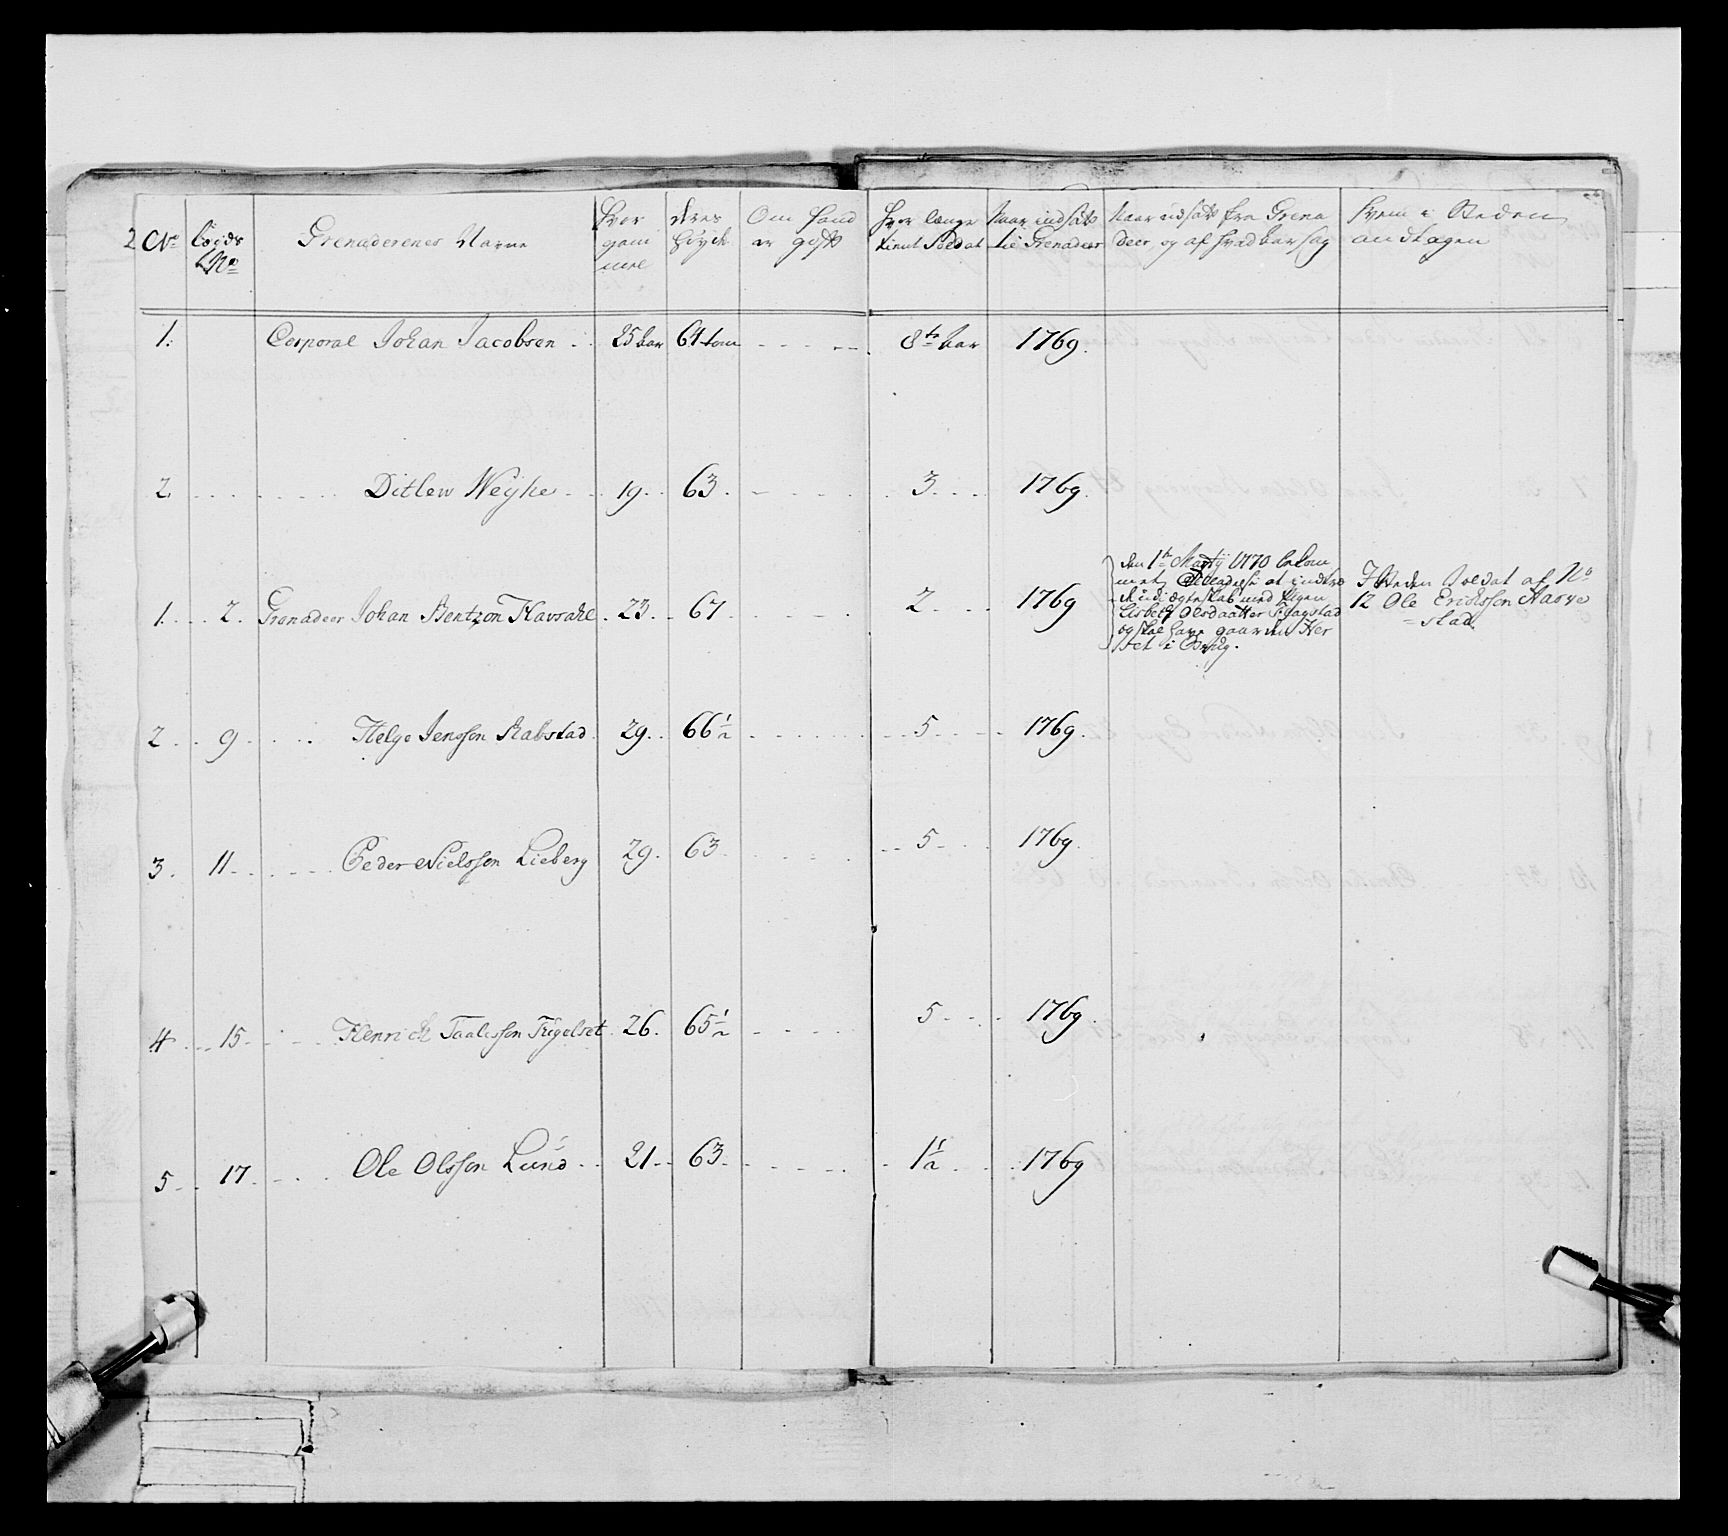 2 No
Lægds No
Grenaderenes Navne
Hvor gam mel
deres Høyde
Om Hand er gift
Hvor længe tient Soldat
Naar indsatt til Grenadeer
Naar udsatt fra Grena deer, og af hvad Aarsag
Hvem i Steden andtagen
1. Corporal Johan Jacobsen 25 Aar 64 tom 8te Aar 1769.
2. Ditlew Weyhe 19 63. 3. 1769.
1. 2. Grenadeer Johan Bentzon Havsahl 23. 67. 2 1769
den 1te Martij 1770 bekom
met Tilladelse at indtræ
de udj ægteskab med Pigen
Lisbeth Olsdaatter
og skal have gaarden Her
set i Brug.
I Steden Soldat af No
12 Ole Erichsson Narve
=stad.
2. 9. Helge Jensson Rabstad 29. 66 1/2 5 1769.
3. 11. Peder Nielsson Lieberg 29. 63 5 1769.
4 15. Henrich Taalesson 26. 65 1/2 5 1769.
5 17. Ole Olsson Lund 21 63. 1 1/2 1769